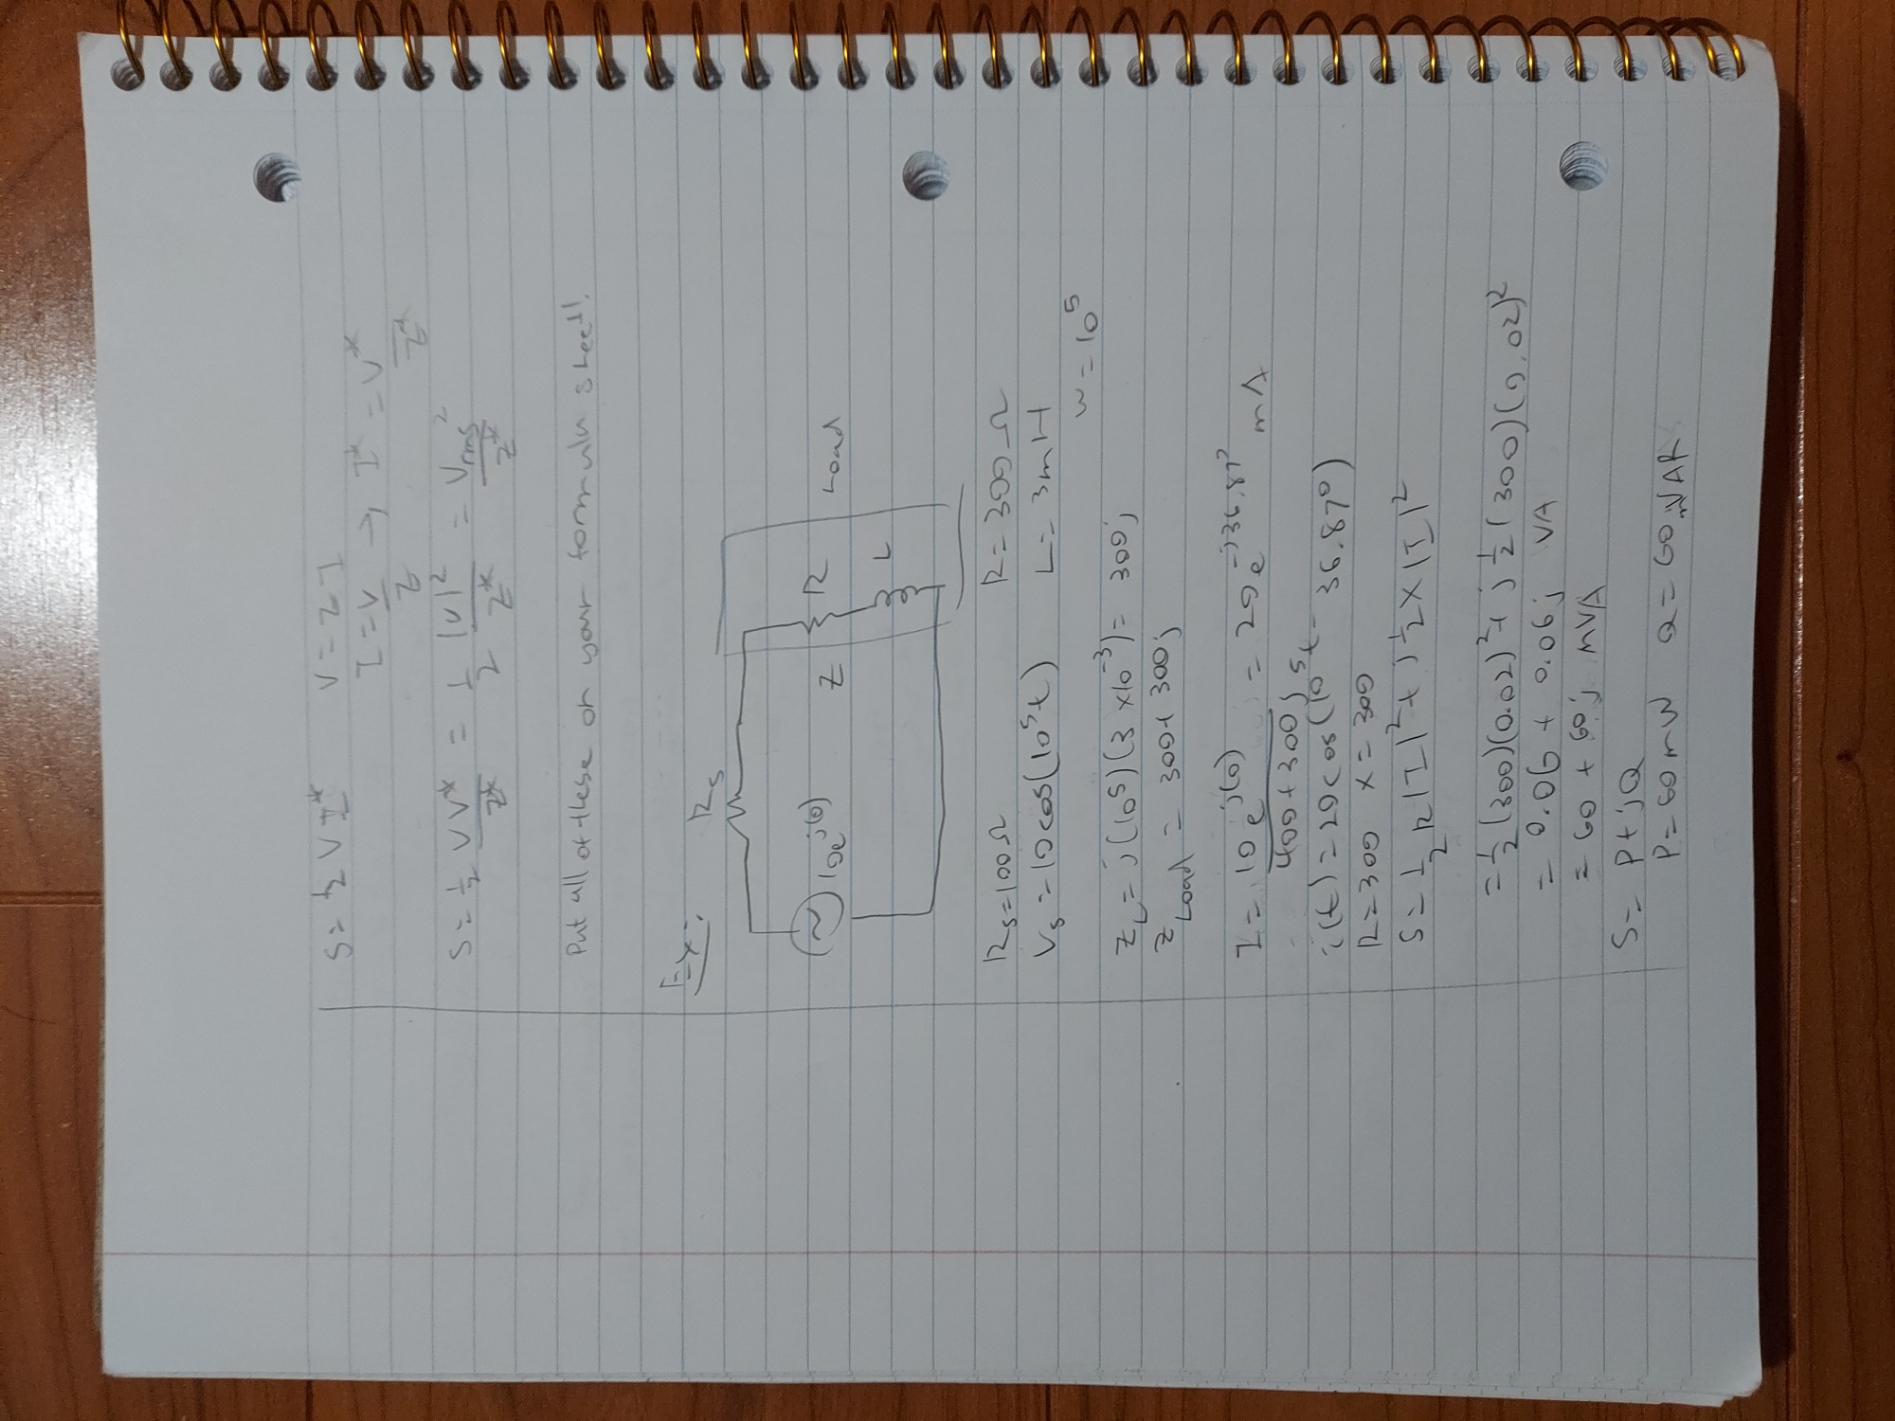 S = ½ V I* V = Z I
I = V/Z → I* = V*/Z*
S = ½ VV*/Z* = ½ |V|²/Z* = Vrms²/Z*
Put all of these on your formula sheet!!
Ex:
Rs
10e^j(0) Z R Load
L
Rs = 100Ω R = 300 Ω
Vs = 10cos(10⁵t) L = 3mH
w = 10⁵
Z_L = j(10⁵)(3 x10⁻³) = 300j
Z_Load = 300 + 300j
I = 10e^j(0) / 400 + 300j = 20e^-j36.87° mA
i(t) = 20cos(10⁵t - 36.87°)
R = 300 X = 300
S = ½ R|I|² + j ½ X|I|²
= ½ (300)(0.02)² + j ½ (300)(0.02)²
= 0.06 + 0.06j VA
= 60 + 60j mVA
S = P + jQ
P = 60 mW Q = 60 mVAR